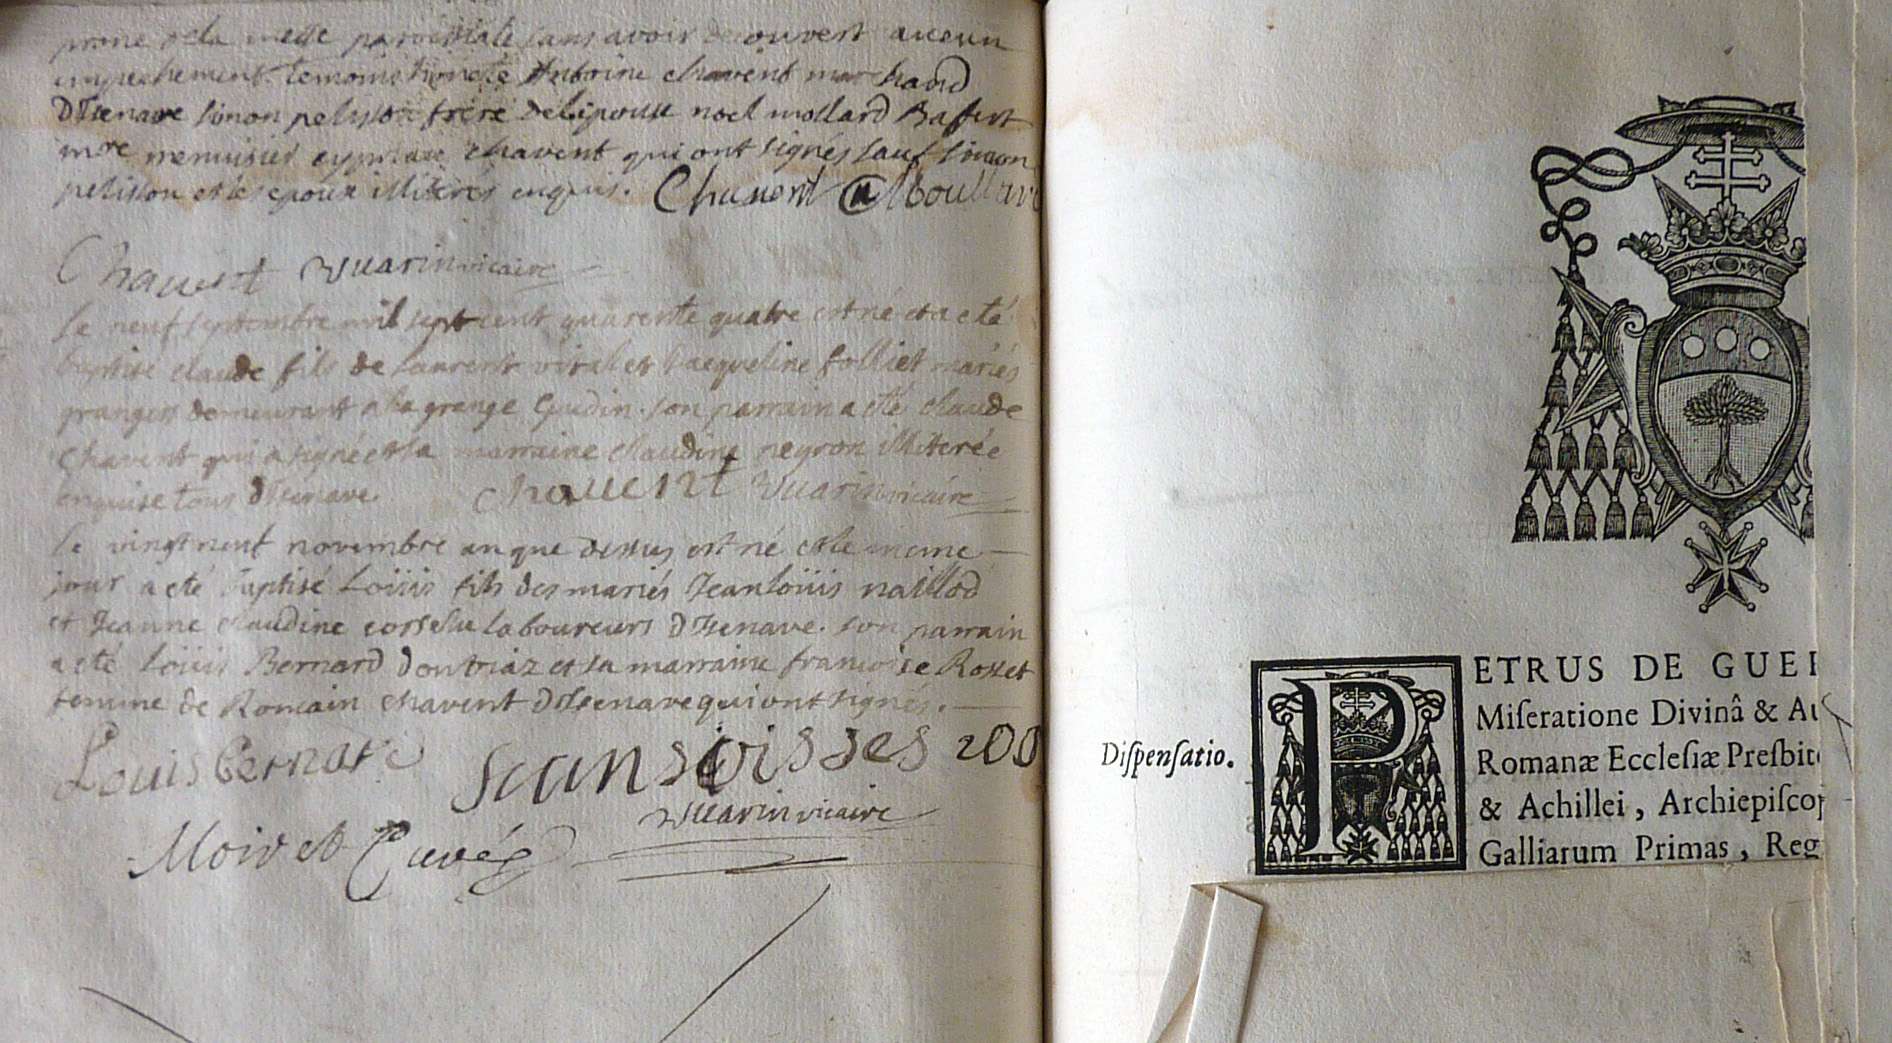 prone de la messe paroissiale sans avoir decouvert aucun
empechement. temoins honete Antoine chavent marchand
D'Isenave simon pelisson frere de lepouse noel mollard
mtre menuisier chavent qui ont signés sauf simon
pelisson et les epoux illiterés enquis. Chavent
Chavent Vuarin vicaire
le neuf septembre mil sept cent quarente quatre est né et a eté
baptisé claude fils de laurent viral et Jacqueline folliet mariés
grangers demeurant a la grange Gudin. son parrain a eté claude
chavent qui a signé et la marraine claudine neyron illiterée
enquise tous D'Isenave. Chavent Vuarin vicaire
le vingt neuf novembre an que dessus est né et le meme
jour a eté baptisé Loüis fils des mariés Jean loüis naillod
et Jeanne claudine laboureurs D'Isenave. son parrain
a eté loüis Bernard Doutriaz et sa marraine francoise Rosset
femme de Romain chavent D'Isenave qui ont signés.
Louis Bernard
Vuarin vicaire
Moiret Curé
Dispensatio.
PETRUS DE GUE
Miſeratione Divinâ & A
Romanæ Eccleſiæ Preſbit
& Achillei, Archiepiſcop
Galliarum Primas, Reg